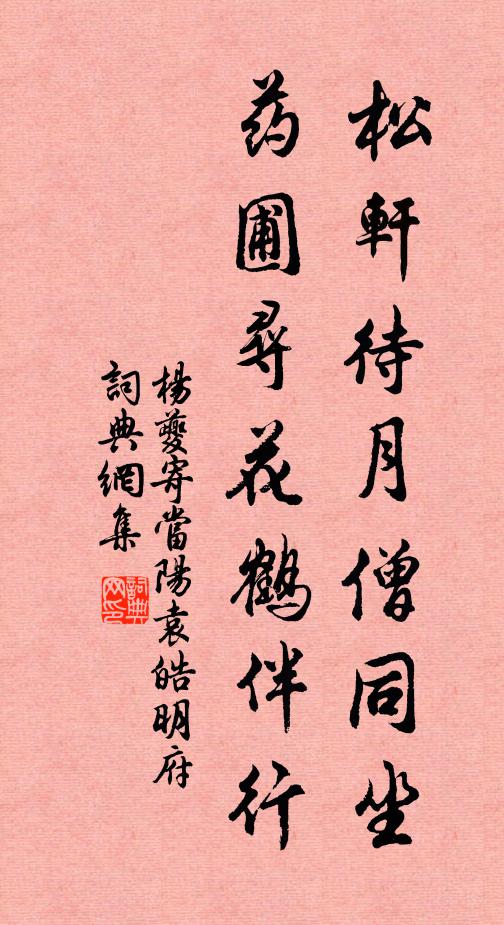 松軒待月僧同坐
药圃尋花鶴伴行
楊夔寄當陽袁皓明府
詞典網集
詞典网印